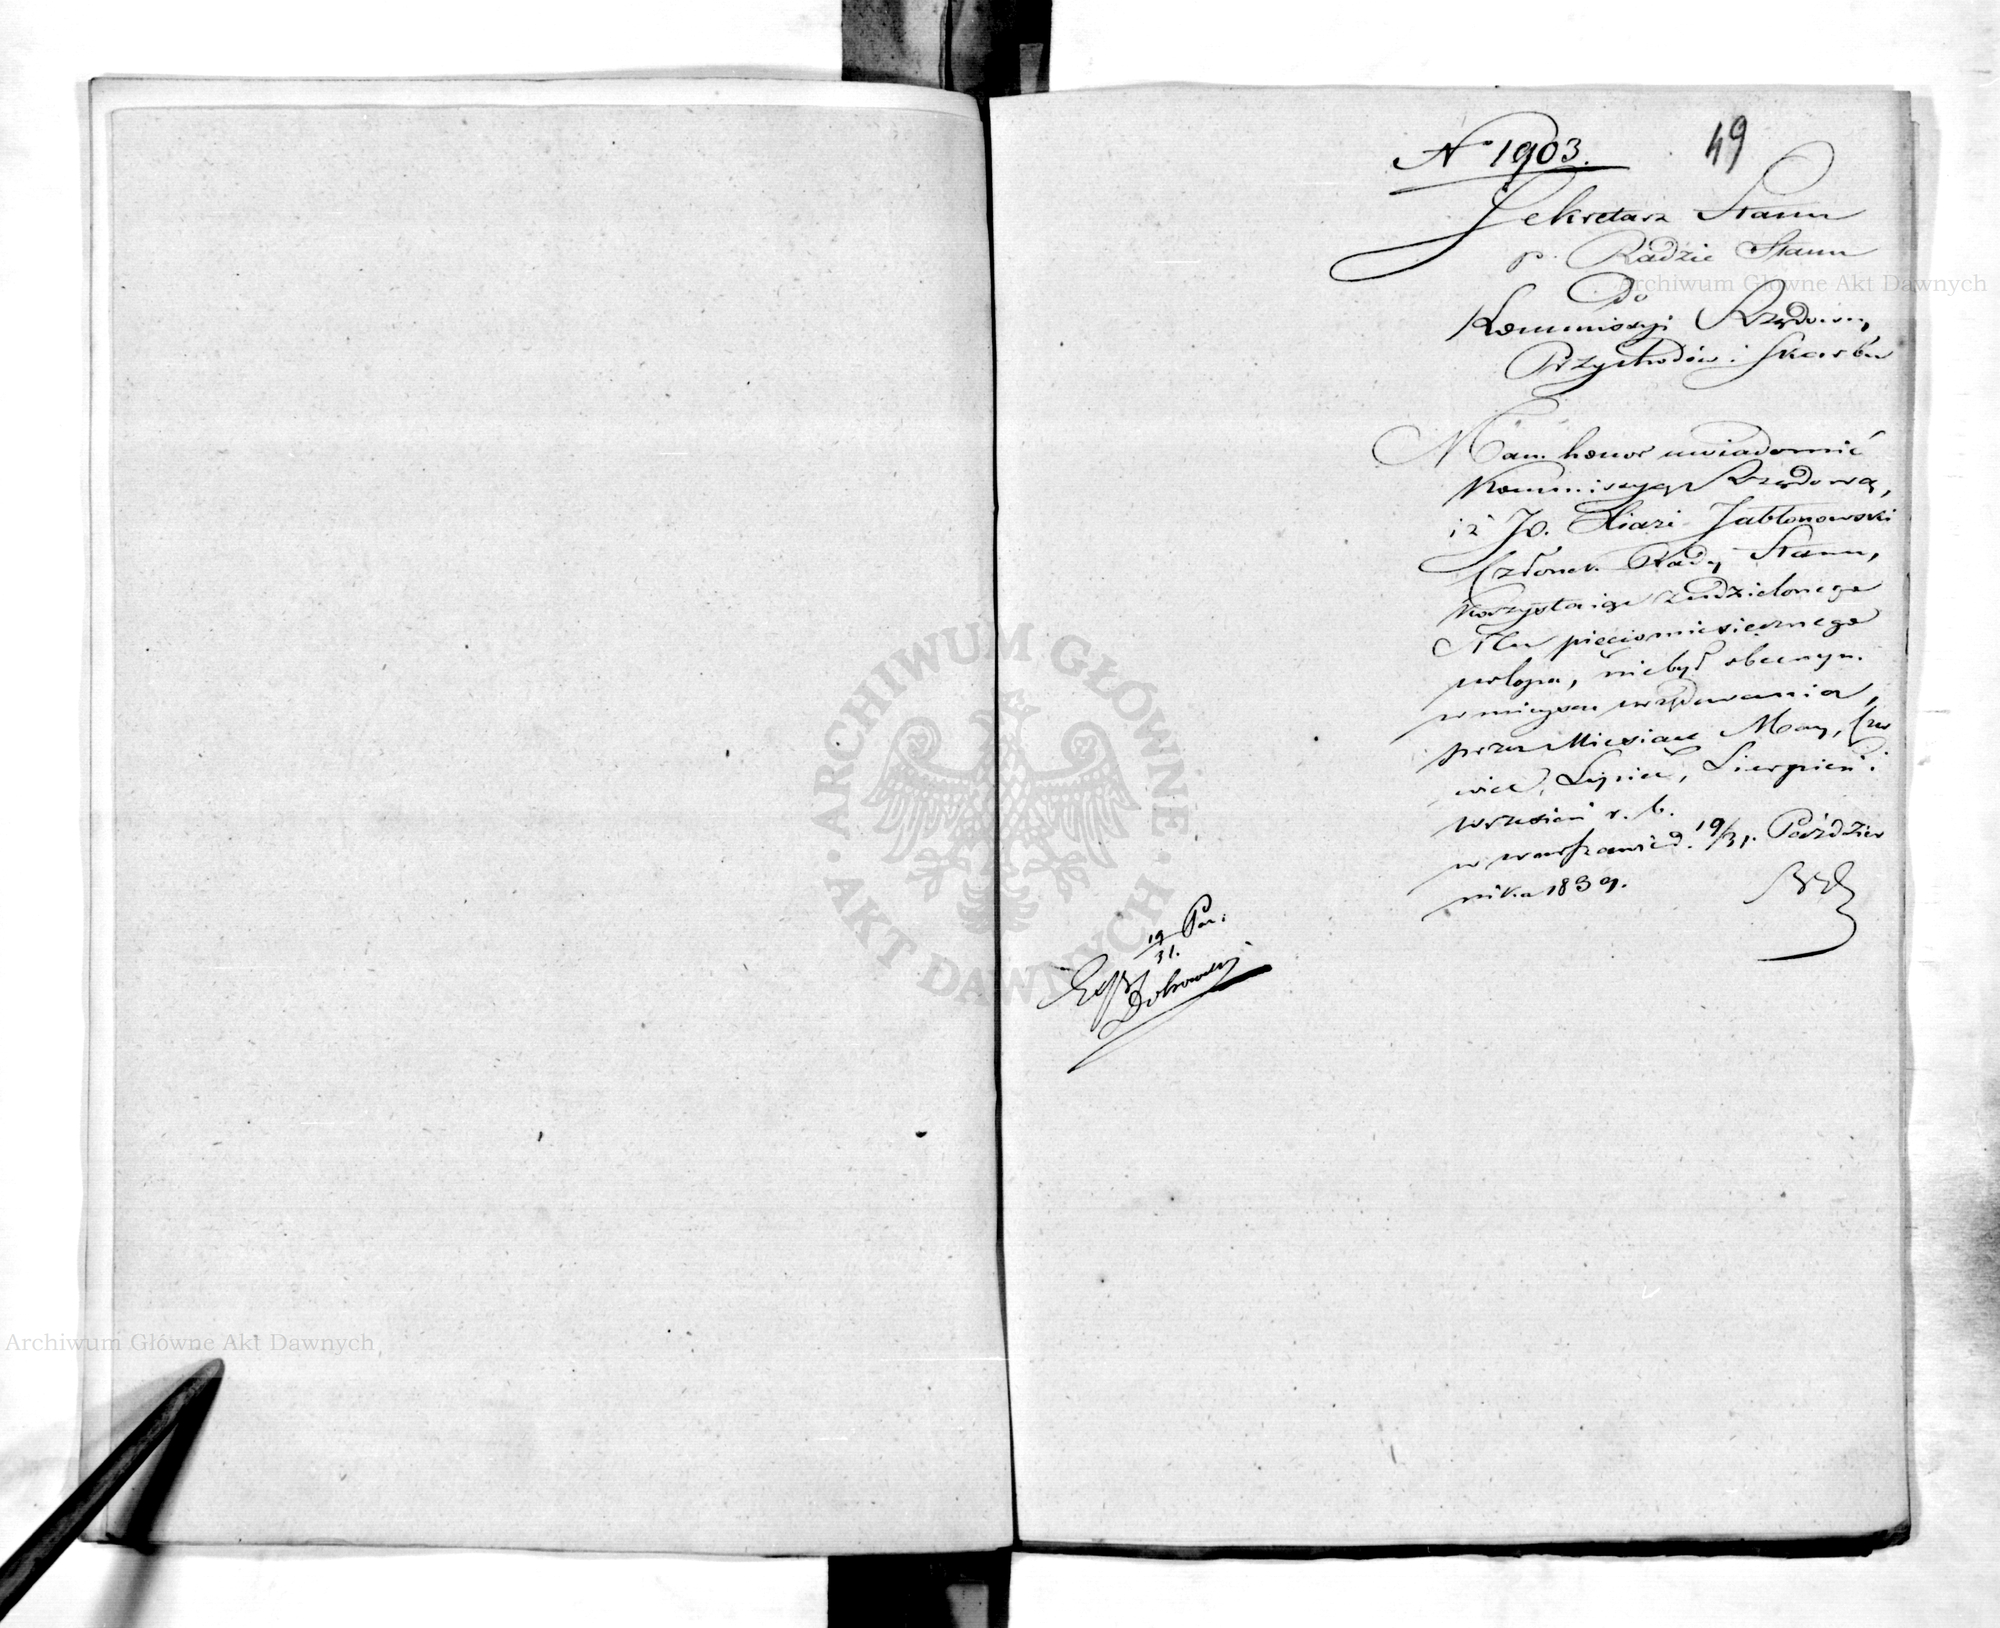 49
N 1903.
Sekretarz Stanu
p. Radzie Stanu
Do
Kommissyi Rządowey
Przychodów i Skarbu
Mam honor uwiadomić
Kommissyą Rządową,
iż JO. Xiąże Jabłonowski
Członek Rady Stanu,
korzystaiąc z udzielonego
Mu pięciomiesięcznego
urlopu, niebył obecnym
w mieyscu urzędowania,
przez Miesiące May, Czer
wiec, Lipiec, Sierpień i
Wrzesień r. b.
w Warszawie d. 19/31. Paździer
nika 1839.
19/31. Paź:
Archiwum Główne Akt Dawnych
Archiwum Główne Akt Dawnych
ARCHIWUM GŁÓWNE · AKT DAWNYCH ·